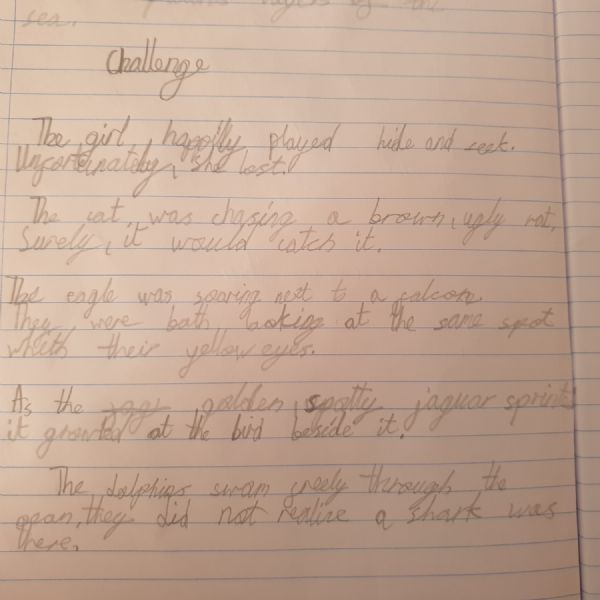 sea.
Challenge
The girl happilly played hide and seek.
Unfortunatelay, she lost.
The cat, was chasing a brown, ugly rat,
Surely, it would catch it.
The eagle was soaring next to a falcon.
They were both looking at the same spot
whith their yellow eyes.
As the golden, spotty jaguar sprints
it growled at the bird beside it.
The dolphins swam freely through the
they did not realize a shark was
there.